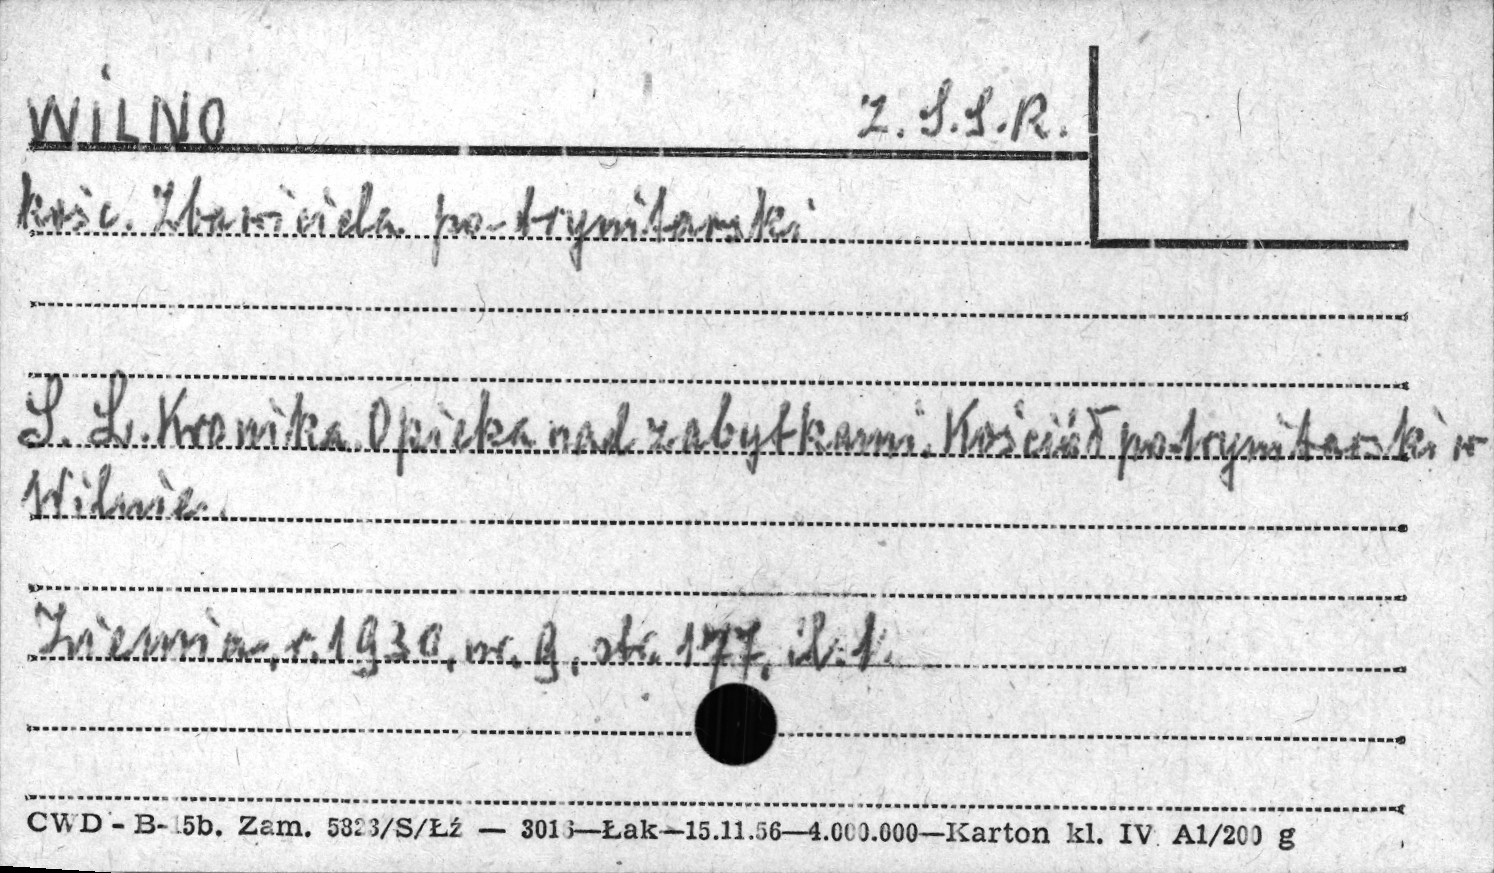 WILNO Z.S.S.R.
kośc. Zbawiciela po-trynitarski
S. L. Kronika. Opieka nad zabytkami. Kościół po-trynitarski w
Wilnie.
Ziemia, r. 1930, nr. 9, str. 177, il. 1.
CWD - B-15b. Zam. 5823/S/Łź — 3016—Łak—15.11.56—4.000.000—Karton kl. IV A1/200 g